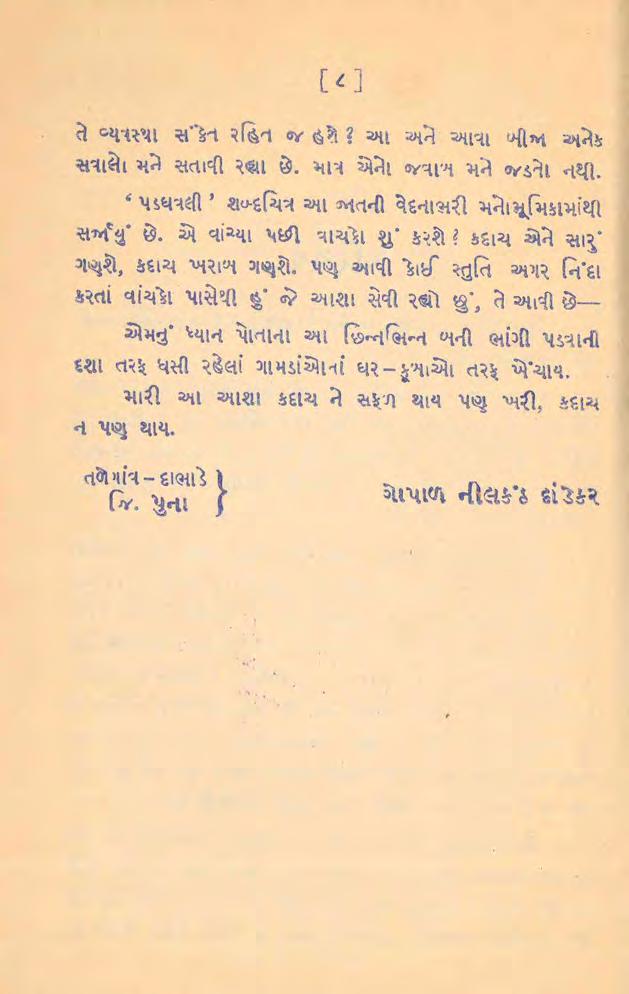 [ ૮ ]
તે વ્યવસ્થા સંકેત રહિત જ હશે ? આ અને આવા બીજા અનેક
સવાલો મને સતાવી રહ્યા છે. માત્ર એનો જવાબ મને જડતો નથી.
‘ પડઘવલી ’ શબ્દચિત્ર આ જાતની વેદનાભરી મનોભૂમિકામાંથી
સર્જાયું છે. એ વાંચ્યા પછી વાચકો શું કરશે ? કદાચ એને સારું
ગણશે, કદાચ ખરાબ ગણશે. પણ આવી કોઈ સ્તુતિ અગર નિંદા
કરતાં વાંચકો પાસેથી હું જે આશા સેવી રહ્યો છું, તે આવી છે—
એમનું ધ્યાન પોતાના આ છિન્નભિન્ન બની ભાંગી પડવાની
દશા તરફ ધસી રહેલાં ગામડાંઓનાં ઘર–કૂબાઓ તરફ ખેંચાય.
મારી આ આશા કદાચ ને સફળ થાય પણ ખરી, કદાચ
ન પણ થાય.
તળેગાંવ – દાભાડે }
જિ. પુના
ગોપાળ નીલકંઠ દાંડેકર